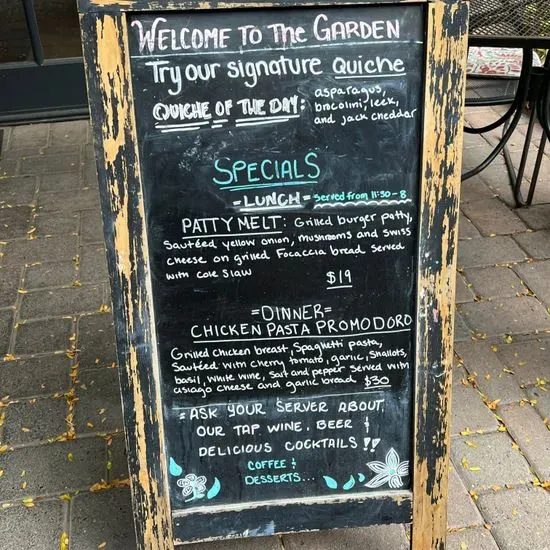 WELCOME TO THE GARDEN
Try our signature Quiche
QUICHE OF THE DAY: asparagus,
brocolini, leek,
and jack cheddar
SPECIALS
=LUNCH= served from 11:30-8
PATTY MELT: Grilled burger patty,
Sautéed yellow onion, mushrooms and swiss
cheese on grilled Focaccia bread served
with cole slaw
$19
=DINNER=
CHICKEN PASTA PROMODORO
Grilled chicken breast, Spaghetti pasta,
Sautéed with cherry tomato, garlic, Shallots,
basil, white wine, Salt and pepper served with
asiago cheese and garlic bread $30
=ASK YOUR SERVER ABOUT
OUR TAP WINE, BEER &
DELICIOUS COCKTAILS!!
COFFEE &
DESSERTS...